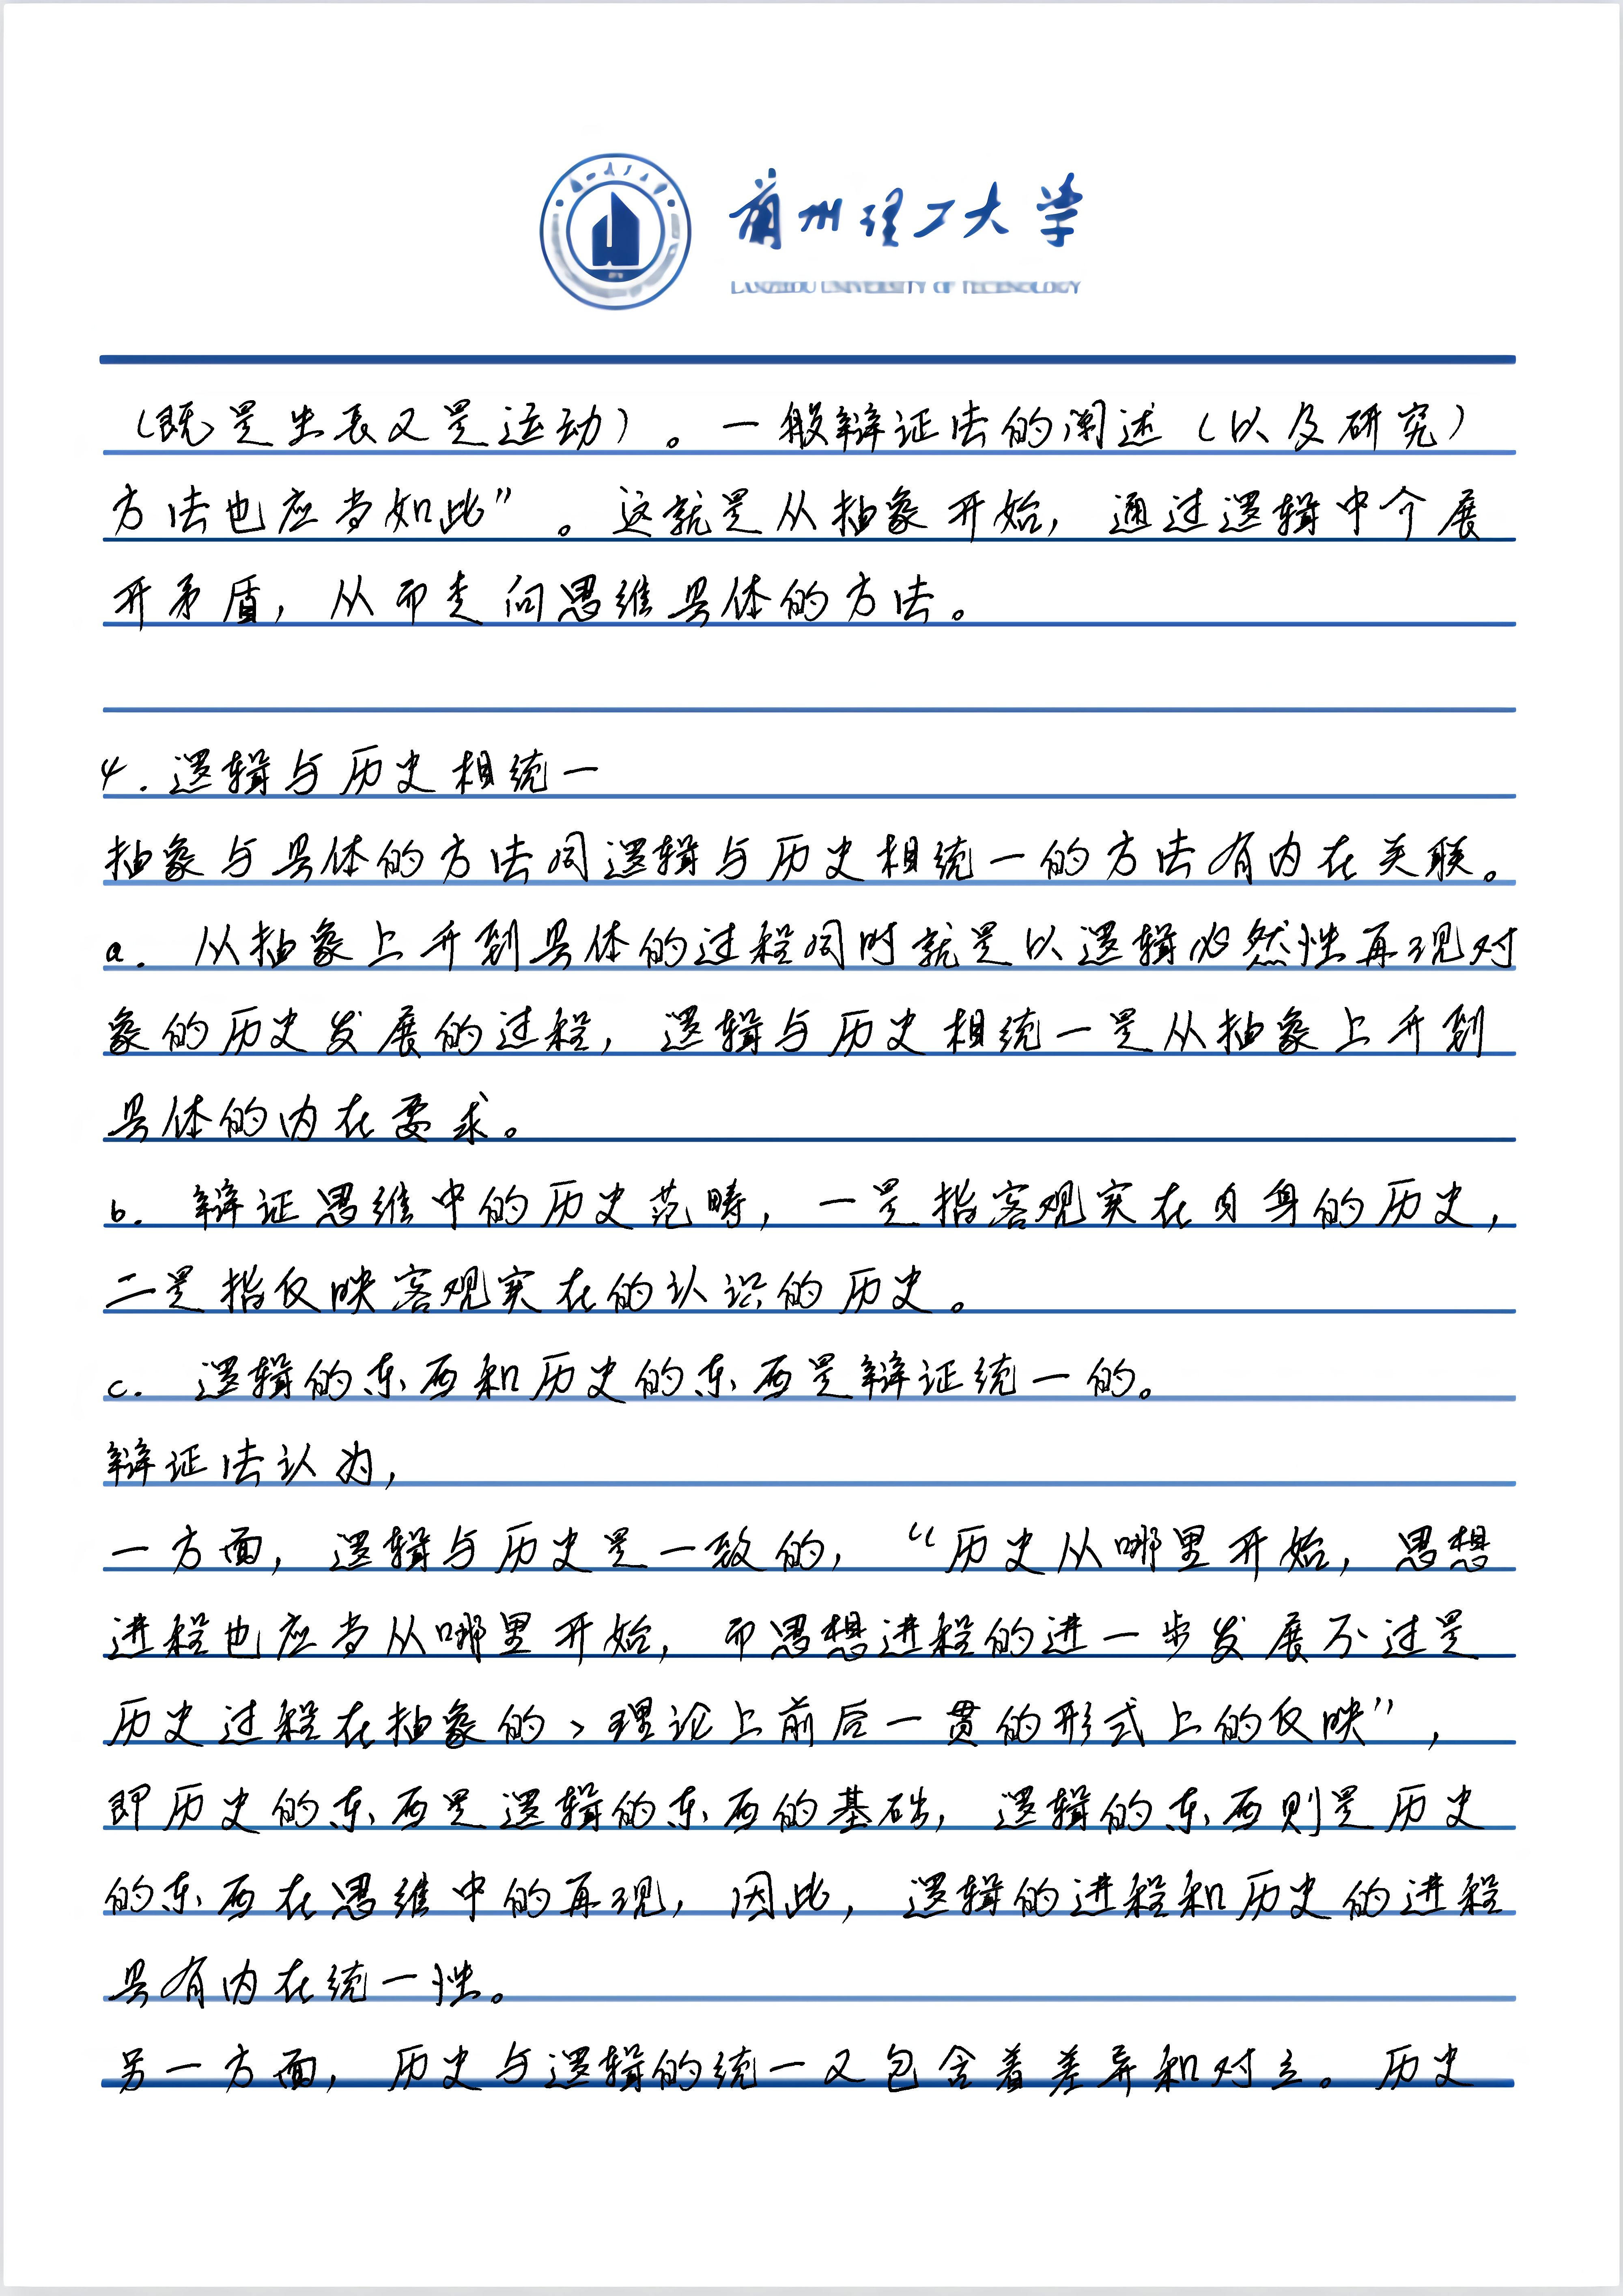 兰州理工大学
LANZHOU UNIVERSITY OF TECHNOLOGY
（既是生长又是运动）。一般辩证法的阐述（以及研究）
方法也应当如此”。这就是从抽象开始，通过逻辑中介展
开矛盾，从而走向思维具体的方法。
4.逻辑与历史相统一
抽象与具体的方法同逻辑与历史相统一的方法有内在关联。
a. 从抽象上升到具体的过程同时就是以逻辑必然性再现对
象的历史发展的过程，逻辑与历史相统一是从抽象上升到
具体的内在要求。
b. 辩证思维中的历史范畴，一是指客观实在自身的历史，
二是指反映客观实在的认识的历史。
c. 逻辑的东西和历史的东西是辩证统一的。
辩证法认为，
一方面，逻辑与历史是一致的，“历史从哪里开始，思想
进程也应当从哪里开始，而思想进程的进一步发展不过是
历史过程在抽象的、理论上前后一贯的形式上的反映”，
即历史的东西是逻辑的东西的基础，逻辑的东西则是历史
的东西在思维中的再现，因此，逻辑的进程和历史的进程
具有内在统一性。
另一方面，历史与逻辑的统一又包含着差异和对立。历史